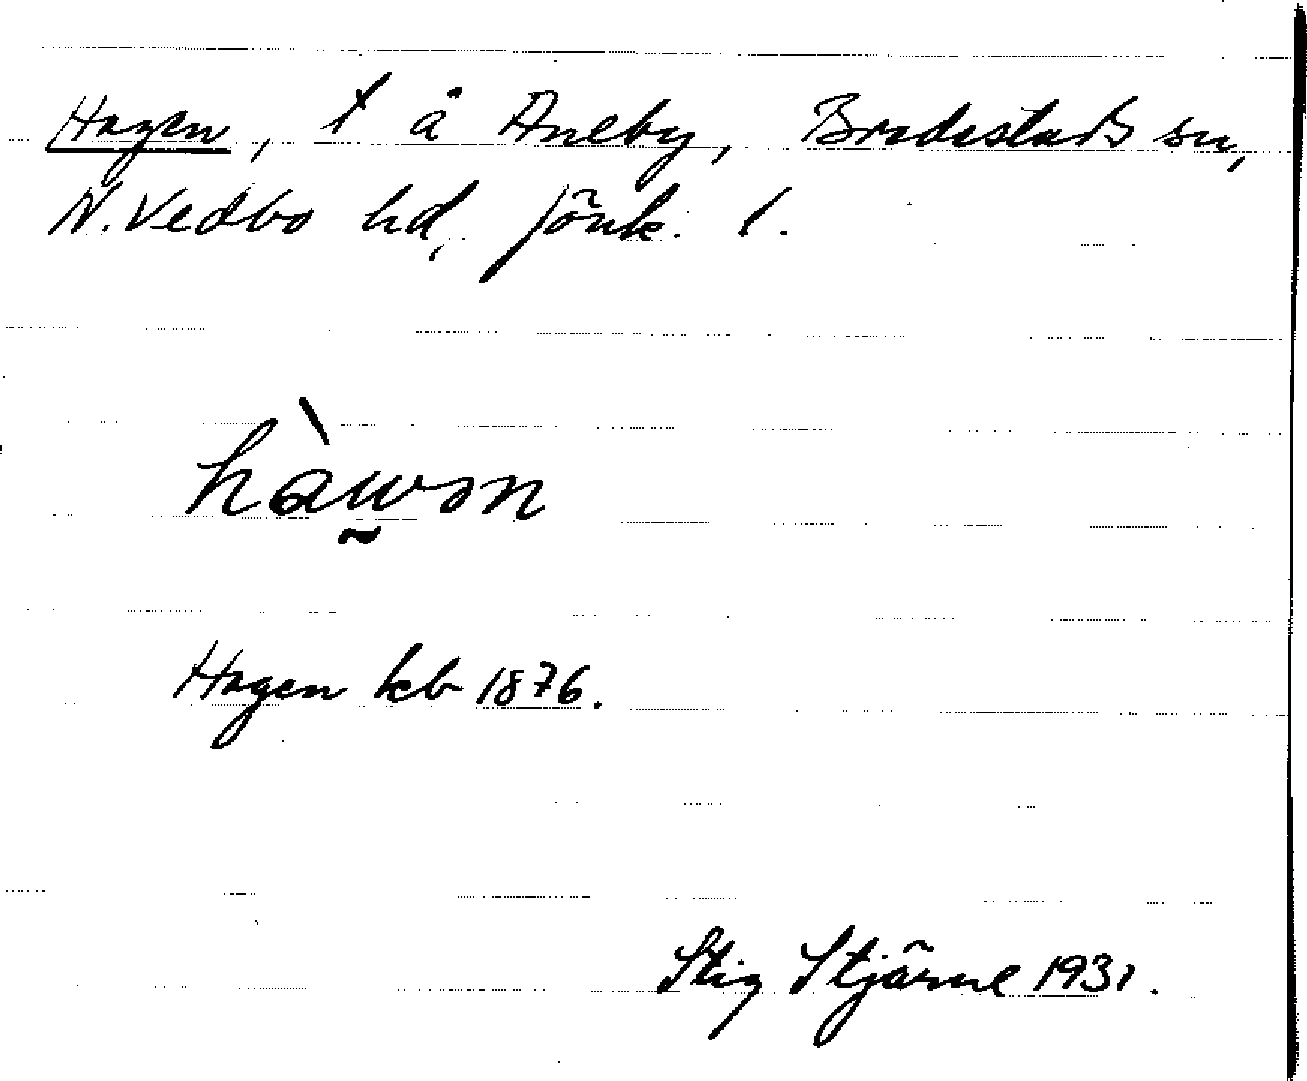 Hagen, t å Aneby, Bredestads sn,
N. Vedbo hd, Jönk. l.
hàwən
Hagen kb 1876.
Stig Stjärne 1931.